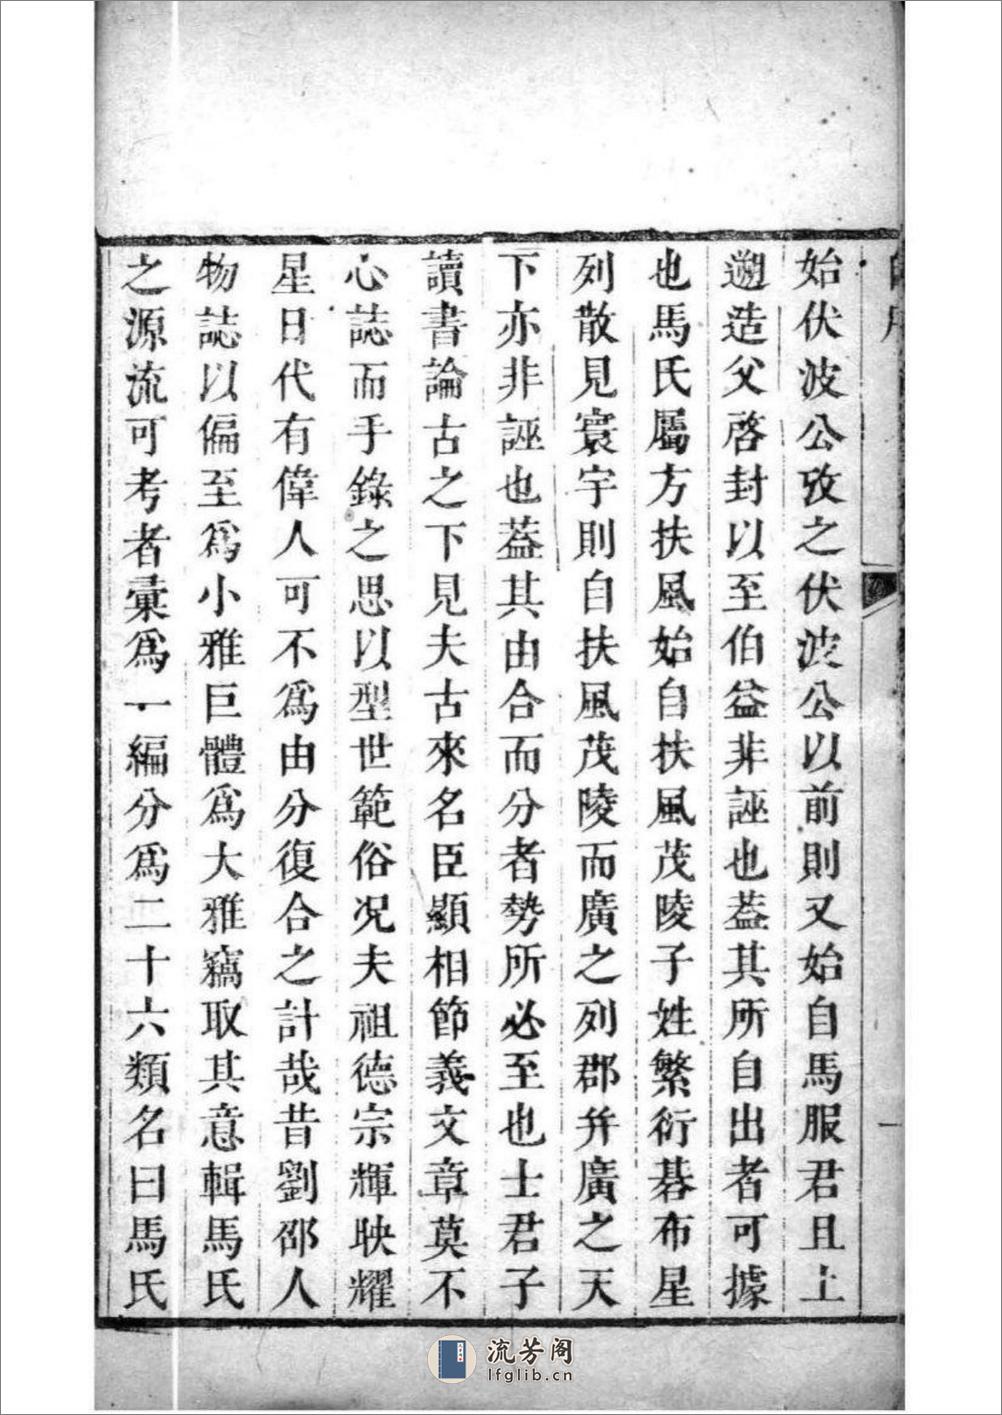 始伏波公攷之伏波公以前則又始自馬服君且上
遡造父啓封以至伯益非誣也葢其所自出者可據
也馬氏屬方扶風始自扶風茂陵子姓繁衍碁布星
列散見寰宇則自扶風茂陵而廣之列郡并廣之天
下亦非誣也葢其由合而分者勢所必至也士君子
讀書論古之下見夫古來名臣顯相節義文章莫不
心誌而手錄之思以型世範俗况夫祖德宗輝映耀
星日代有偉人可不爲由分復合之計哉昔劉邵人
物誌以偏至爲小雅巨體爲大雅竊取其意輯馬氏
之源流可考者彙爲一編分爲二十六類名曰馬氏
一
流芳阁
lfglib.cn